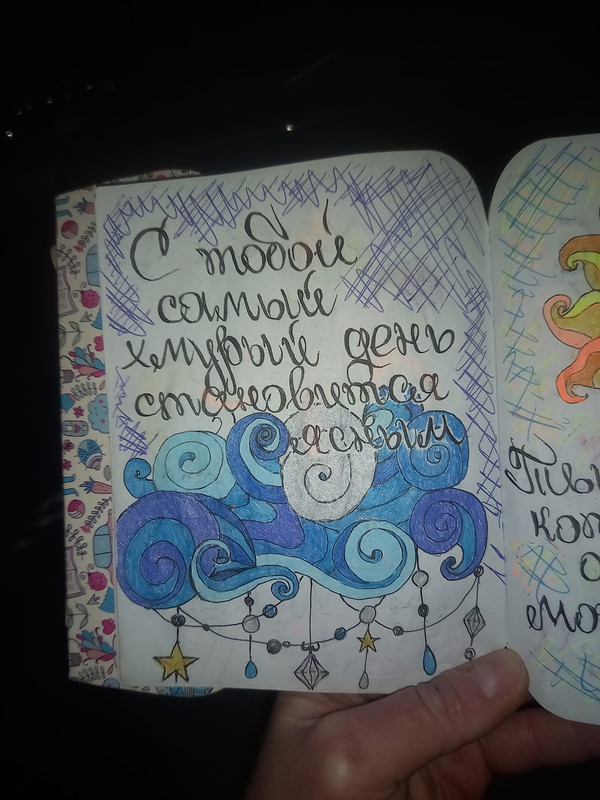 С тобой
самый
хмурый день
становится
ясным
Ты